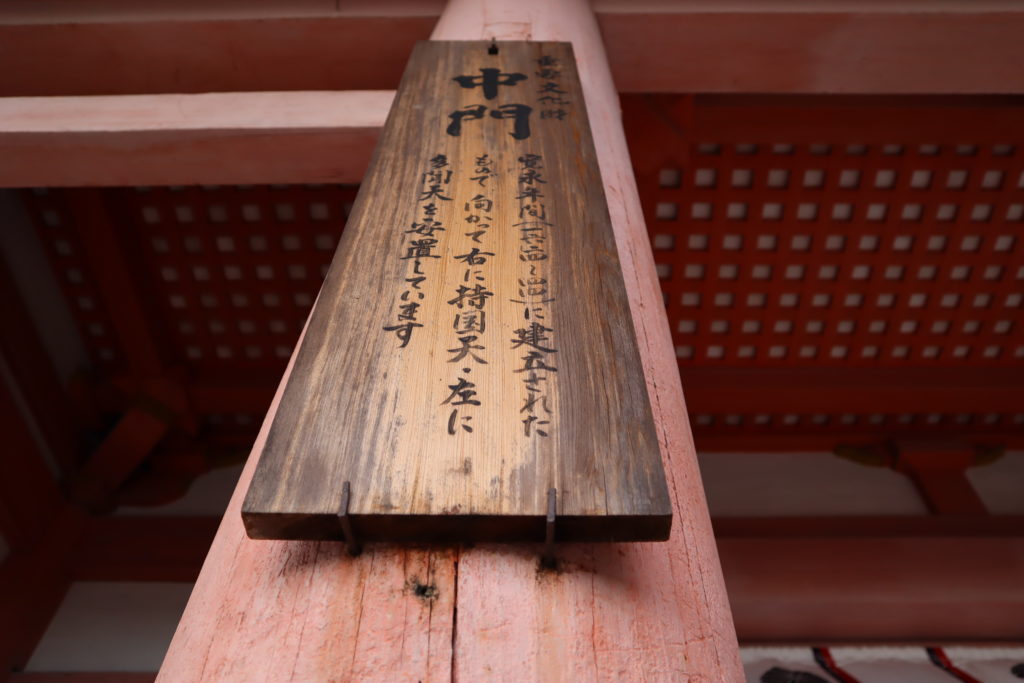 重要文化財
中門
寛永年間(一六三一～三三)に建立された
もので向かって右に持国天・左に
多聞天を安置しています